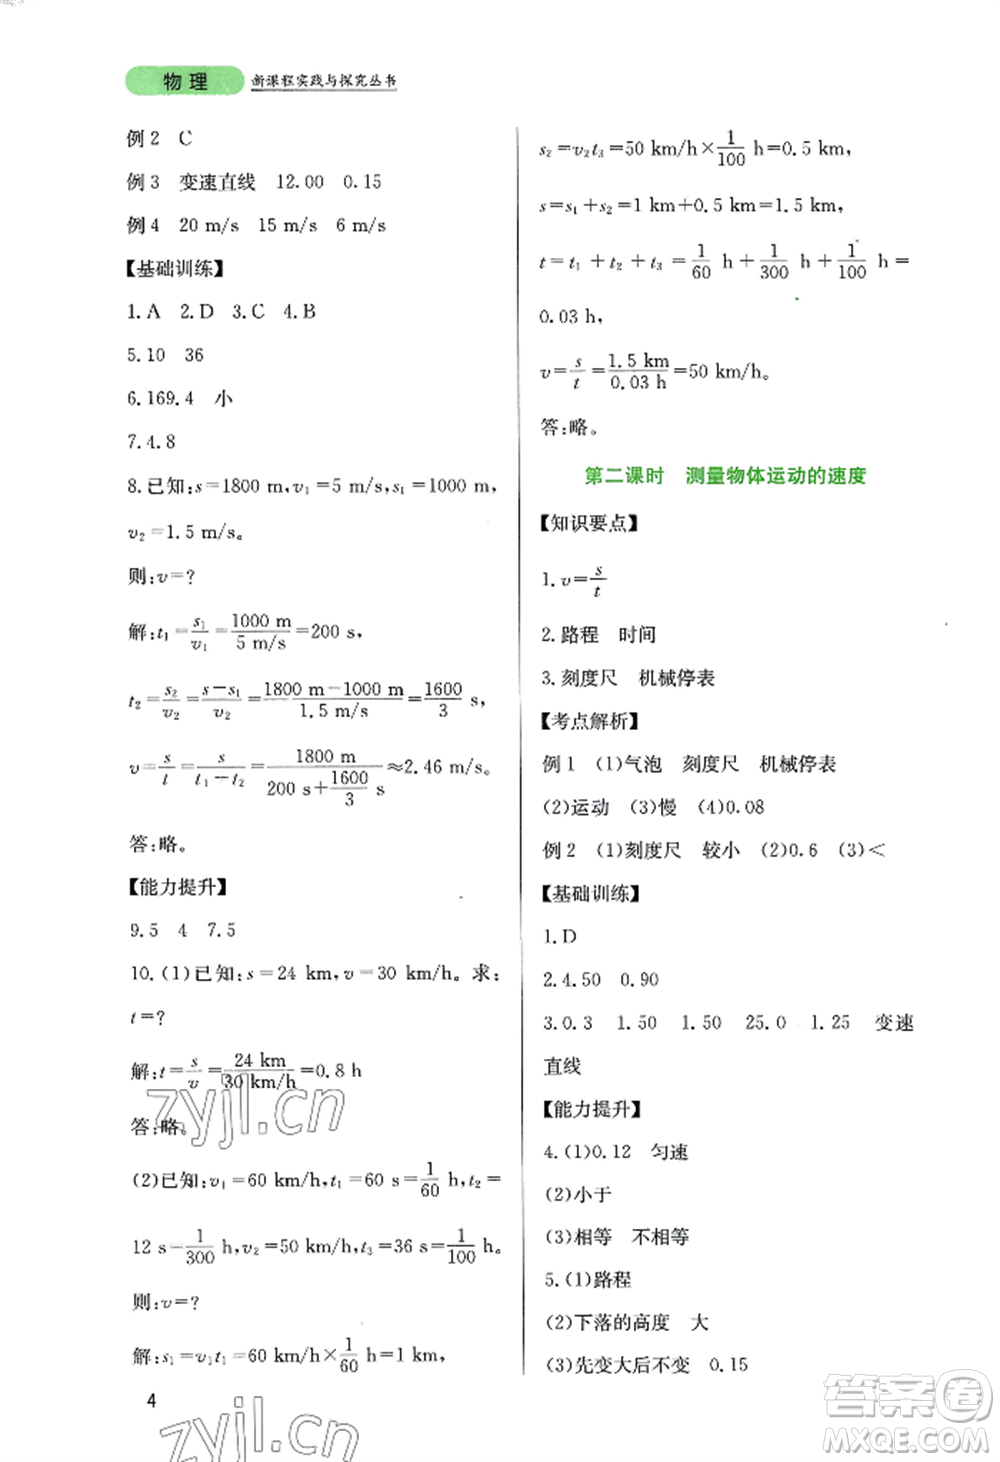 物理 新课程实践与探究丛书
例2 C
例3 变速直线 12.00 0.15
例4 20 m/s 15 m/s 6 m/s
【基础训练】
1.A 2.D 3.C 4.B
5.10 36
6.169.4 小
7.4.8
8.已知:s=1800 m,v₁=5 m/s,s₁=1000 m,
v₂=1.5 m/s。
则:v=?
解:t₁=s₁/v₁=1000 m/5 m/s=200 s,
t₂=s₂/v₂=s-s₁/v₂=1800 m-1000 m/1.5 m/s=1600/3 s,
v=s/t=s/t₁-t₂=1800 m/200 s+1600/3 s≈2.46 m/s。
答:略。
【能力提升】
9.5 4 7.5
10.(1)已知:s=24 km,v=30 km/h。求:
t=?
解:t=s/v=24 km/30 km/h=0.8 h
答:略。
(2)已知:v₁=60 km/h,t₁=60 s=1/60 h,t₂=
12 s-1/300 h,v₂=50 km/h,t₃=36 s=1/100 h。
则:v=?
解:s₁=v₁t₁=60 km/h×1/60 h=1 km,
4
s₂=v₂t₃=50 km/h×1/100 h=0.5 km,
s=s₁+s₂=1 km+0.5 km=1.5 km,
t=t₁+t₂+t₃=1/60 h+1/300 h+1/100 h=
0.03 h,
v=s/t=1.5 km/0.03 h=50 km/h。
答:略。
第二课时 测量物体运动的速度
【知识要点】
1.v=s/t
2.路程 时间
3.刻度尺 机械停表
【考点解析】
例1 (1)气泡 刻度尺 机械停表
(2)运动 (3)慢 (4)0.08
例2 (1)刻度尺 较小 (2)0.6 (3)<
【基础训练】
1.D
2.4.50 0.90
3.0.3 1.50 1.50 25.0 1.25 变速
直线
【能力提升】
4.(1)0.12 匀速
(2)小于
(3)相等 不相等
5.(1)路程
(2)下落的高度 大
(3)先变大后不变 0.15
zyjl.cn
zyjl.cn
答案圈
MXQE.COM